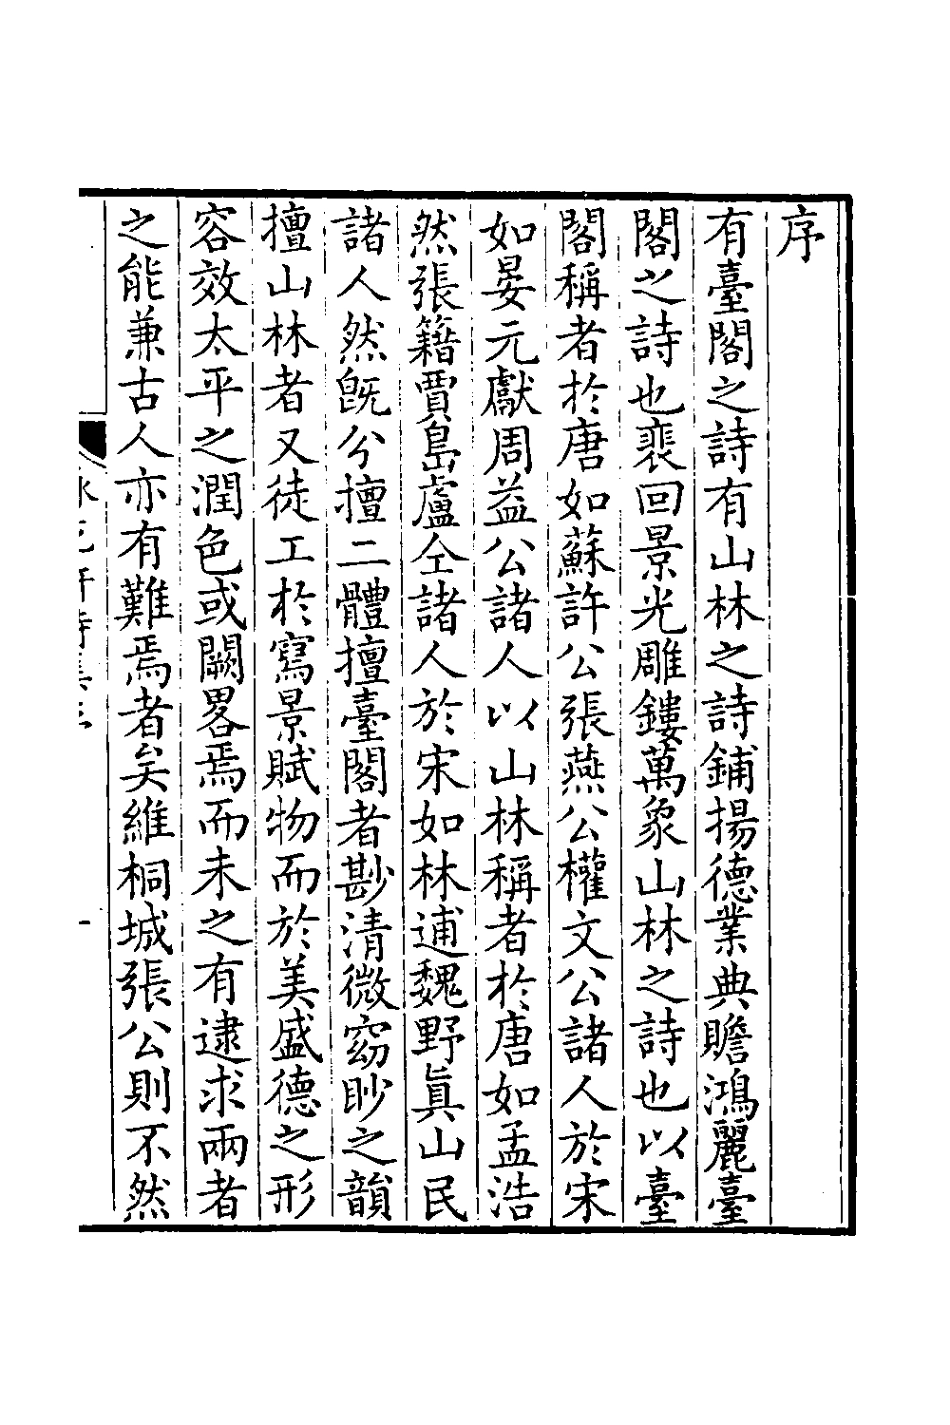 序
有臺閣之詩有山林之詩鋪揚德業典贍鴻麗臺
閣之詩也裴回景光雕鏤萬象山林之詩也以臺
閣稱者於唐如蘇許公張燕公權文公諸人於宋
如晏元獻周益公諸人以山林稱者於唐如孟浩
然張籍賈島盧仝諸人於宋如林逋魏野真山民
諸人然旣分擅二體擅臺閣者尠清微窈眇之韻
擅山林者又徒工於寫景賦物而於美盛德之形
容效太平之潤色或闕畧焉而未之有逮求兩者
之能兼古人亦有難焉者矣維桐城張公則不然